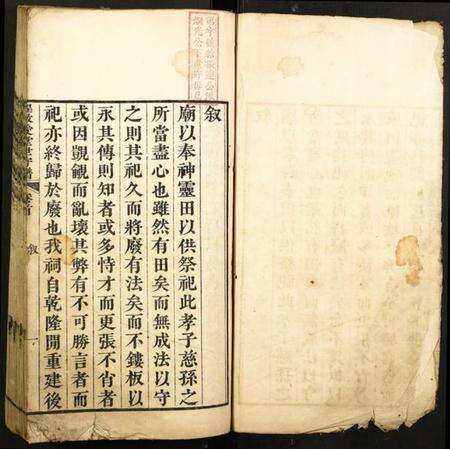 叙
廟以奉神靈田以供祭祀此孝子慈孫之
所當盡心也雖然有田矣而無成法以守
之則其祀久而將廢有法矣而不鏤板以
永其傳則知者或多恃才而更張不肖者
或因覬覦而亂壞其弊有不可勝言者而
祀亦終歸於廢也我祠自乾隆間重建後
叙